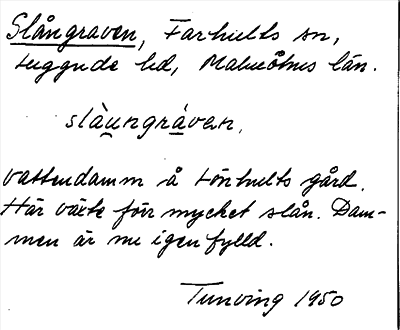 Slångraven, Farhults sn,
Luggude hd, Malmöhus län.
slàu̲ngrá̲ven,
Vattendamm å Lönhults gård.
Här växte förr mycket slån. Dam-
men är nu igenfylld.
Tunving 1950